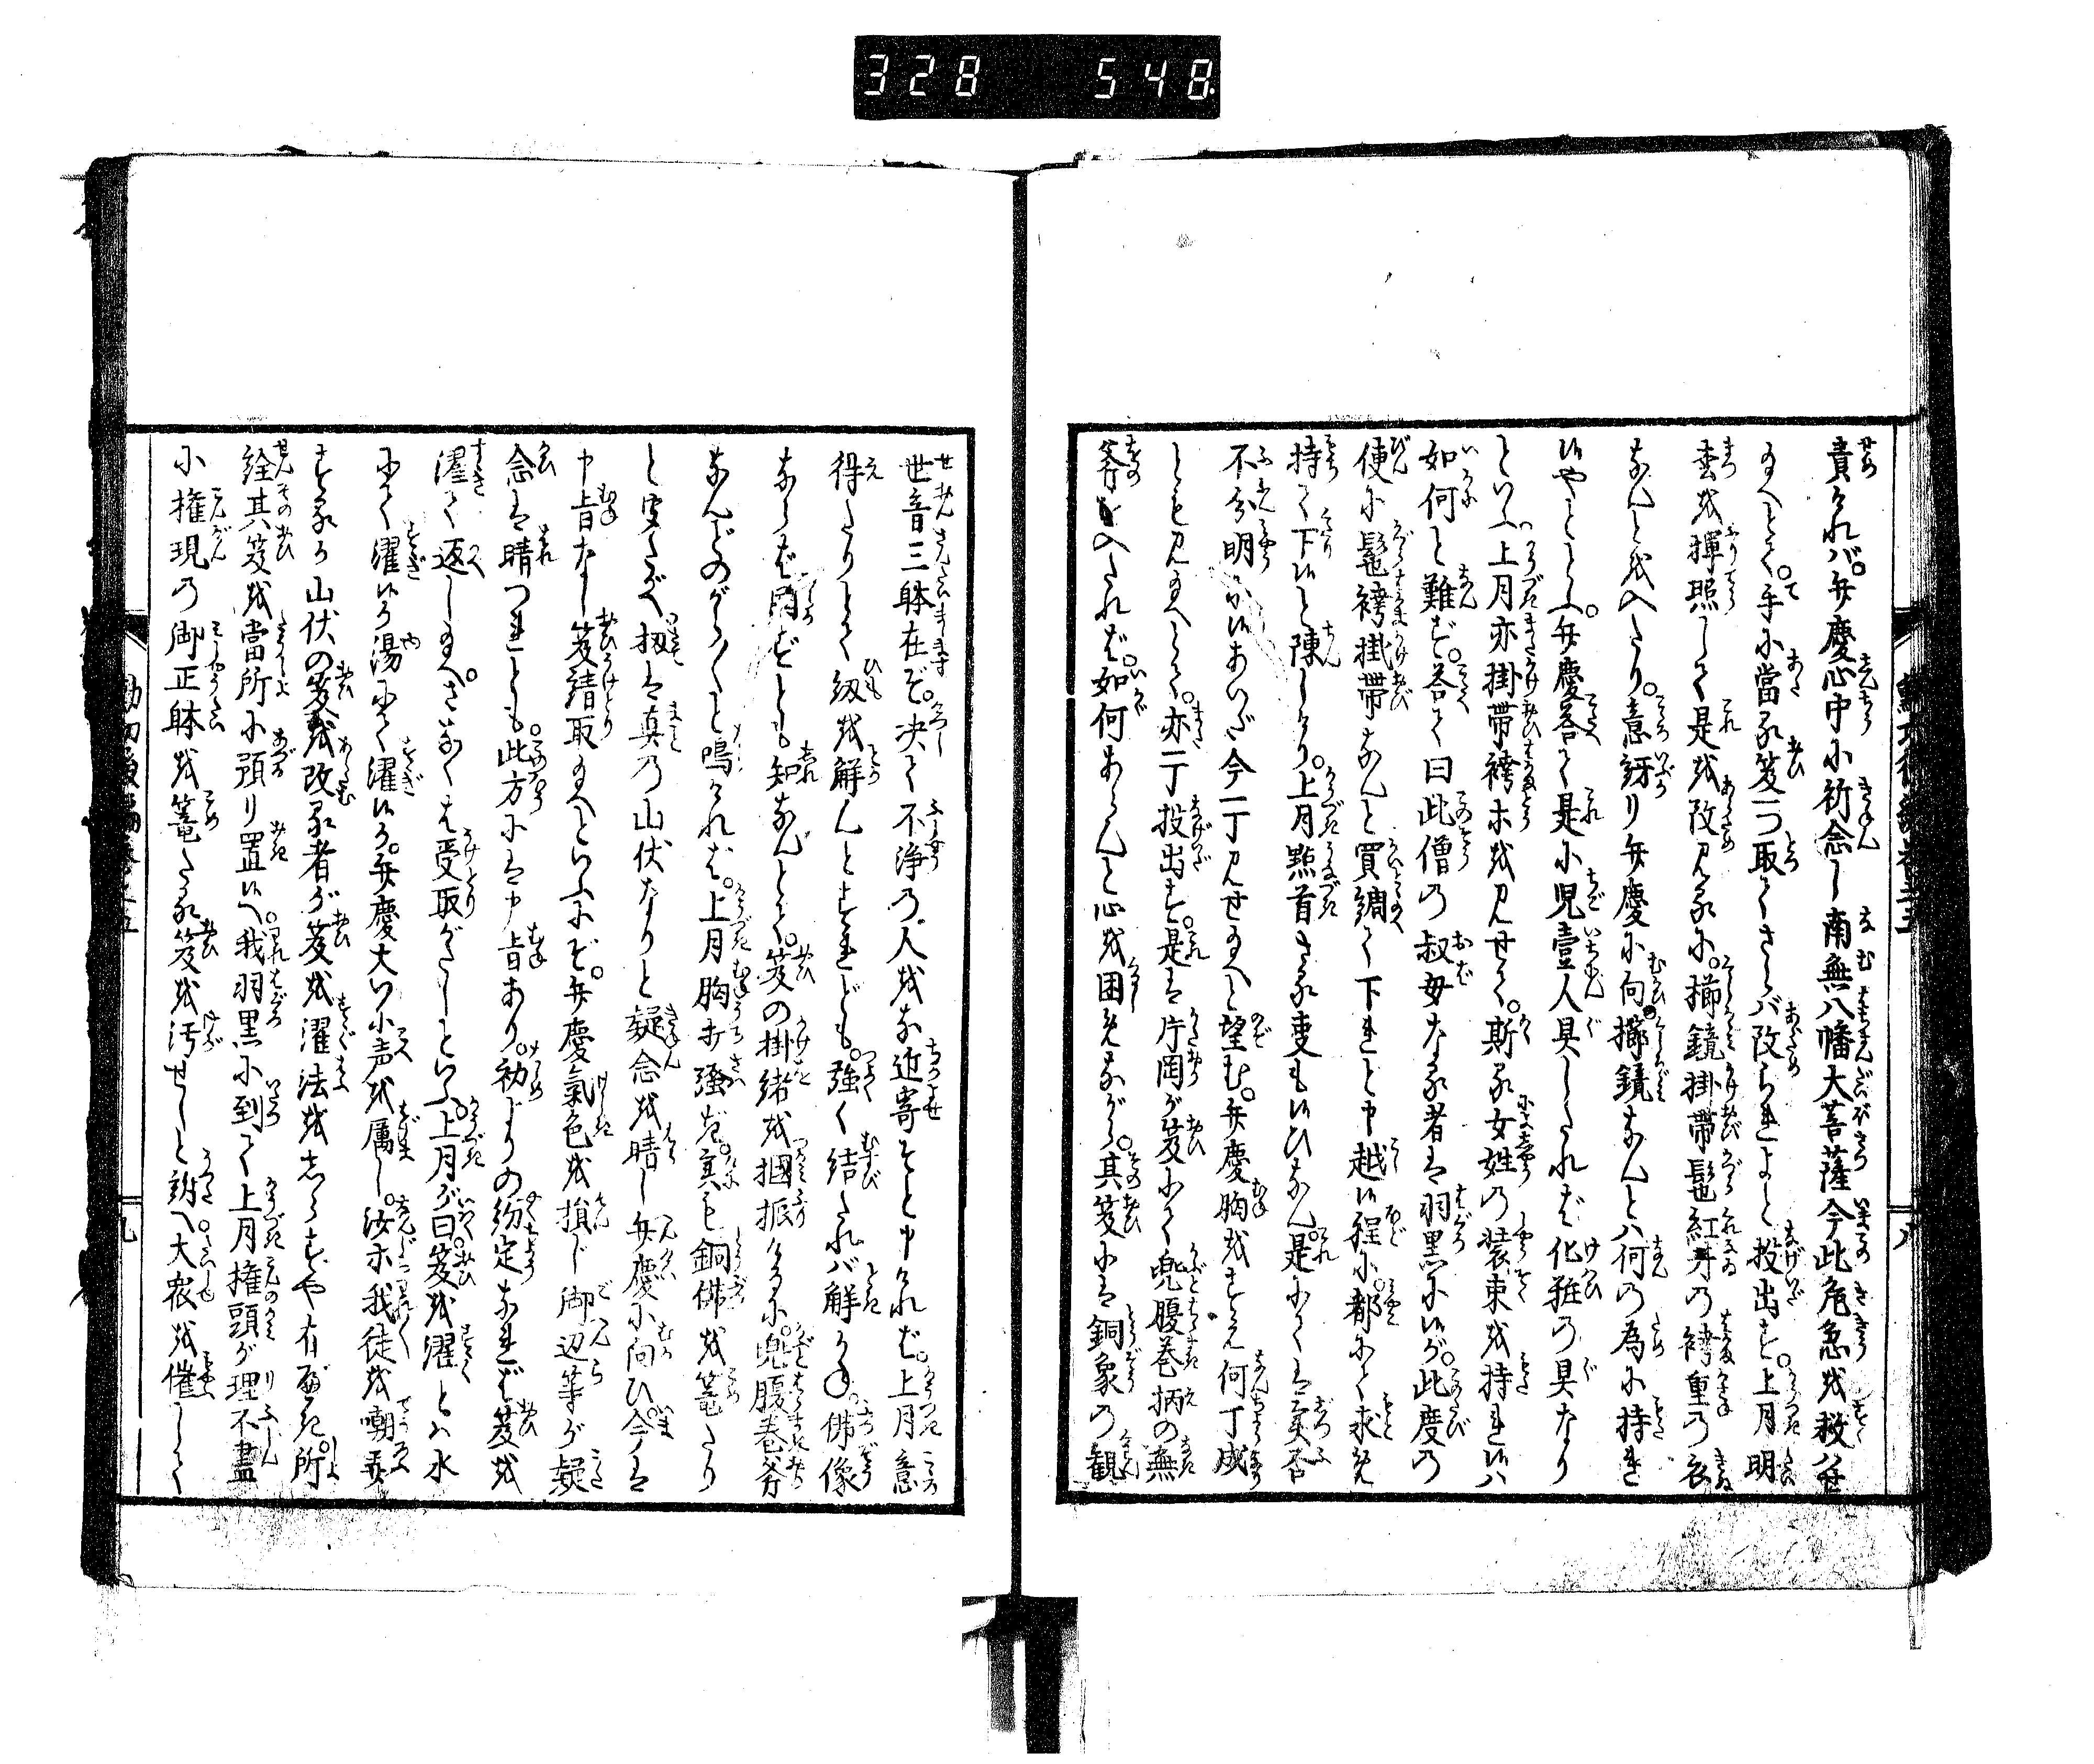 328 548
責けれバ。弁慶心中に祈念し南無八幡大菩薩今此危急を救ハせ
給へとて。手に當る笈一つ取てさらバ改られよと投出す。上月明
松を揮照して是を改見るに。櫛鏡掛帯髢紅丹の袴重の衣
なんどを入たり。意訝り弁慶に向。櫛鏡なんどハ何の為に持れ
候やといふ。弁慶答て是に児壹人具したれば化粧の具なり
といふ。上月亦掛帯袴ホを見せて。斯る女姓の装束を持れ候ハ
如何と難ず。答て曰此僧の叔母なる者は羽黒に候が。此度の
便に髢袴掛帯なんど買繝て下れと申越候程に。都にて求め
持て下候と陳しけり。上月點首さる叓も候ひなん。是にては実否
不分明に候あいだ今一丁見せ給へと望む。弁慶胸をすえ何丁成
とも見給へとて。亦一丁投出す。是は片岡が笈にて兜腹巻柄の無
斧を入たれば。如何あらんと心を困めながら。其笈には銅象の観
八
世音三躰在ぞ。决て不浄の人をな近寄そと申けれど。上月意
得たりとて紐を解んとすれども。強く結たれバ解かね。佛像
ならば開ずとも知なんとて。笈の掛緒を掴振けるに。兜腹巻斧
なんどのがら〱と鳴ければ。上月胸打騒ぎ。実も銅佛を篭たり
と覚たべ扨は真の山伏なりと疑念を晴し弁慶に向ひ。今は
申旨なし笈請取給へといふにぞ。弁慶氣色を損じ御辺等が疑
念は晴つれとも。此方には申旨あり。初よりの約定なれば笈を
濯て返し給へ。さなくは受取がたしといふ。上月が曰笈を濯とハ水
にて濯候か湯にて濯候か。弁慶大いに声を属し。汝ホ我徒を嘲弄
するか山伏の笈を改る者が笈を濯法をしらずや有べき。所
詮其笈を當所に預り置候へ。我羽黒に到て上月權頭が理不盡
に権現の御正躰を篭たる笈を汚せしと訴へ大衆を催して
九